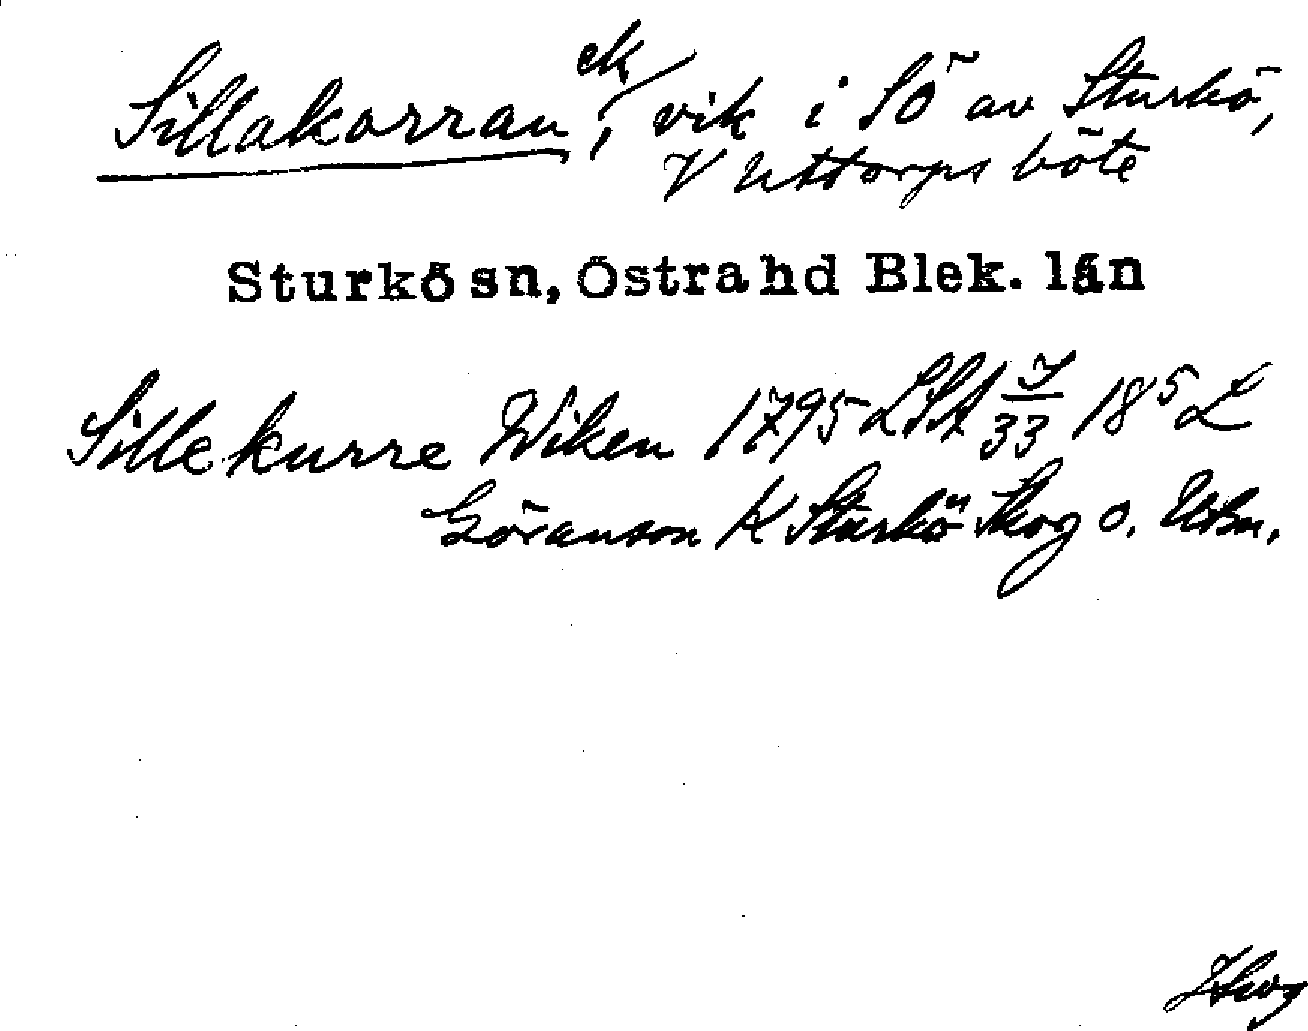 Sillakorran, ek vik i SÖ av Sturkö,
V Uttorps böte
Sturkö sn, Östra hd Blek. län
Sille kurre Wiken 1795 LSA J/33 18⁵ L
Göranson K Sturkö Skog o. Utm.